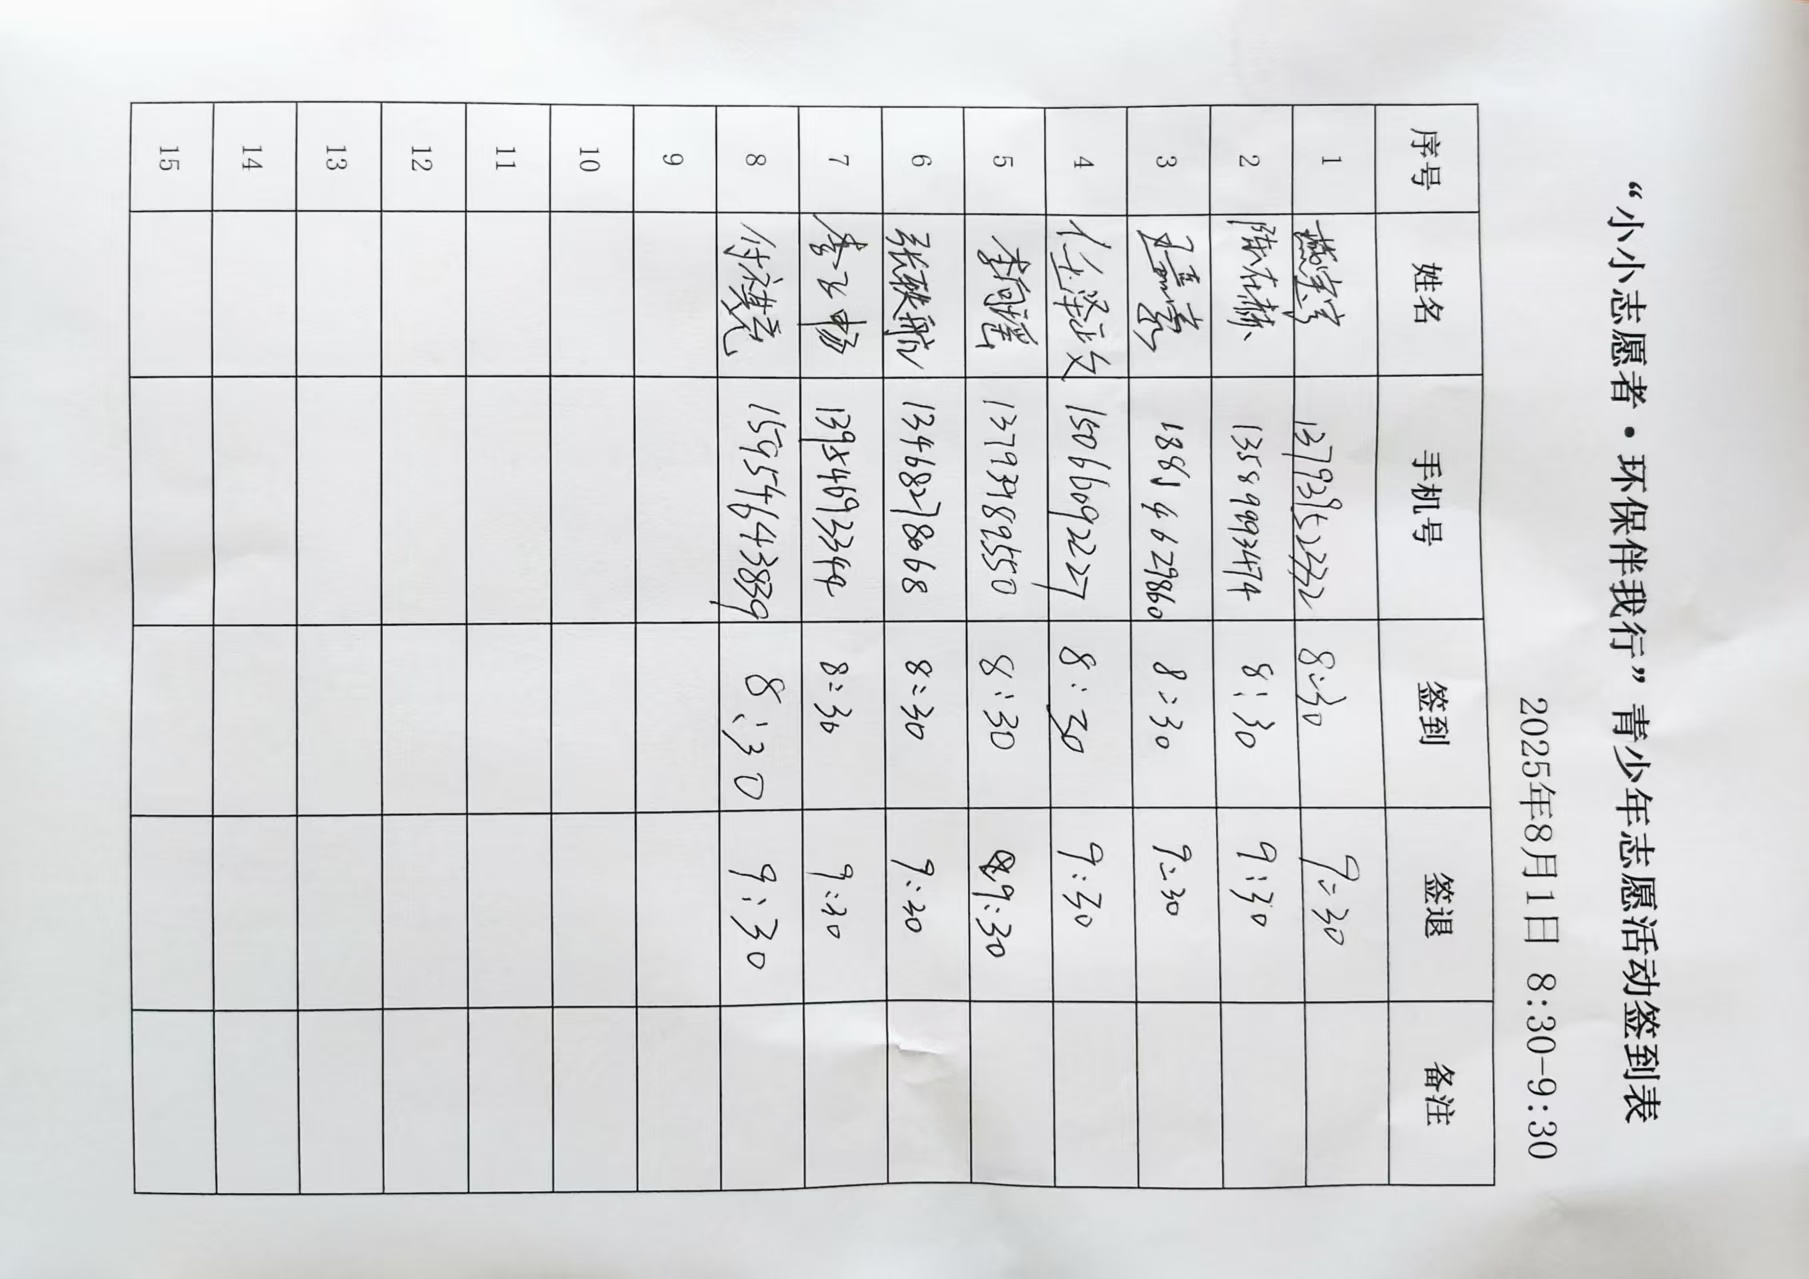 “小小志愿者·环保伴我行”青少年志愿活动签到表
2025年8月1日 8:30-9:30
序号 姓名 手机号 签到 签退 备注
1 8:30 9:30
2 陈右赫 13589993474 8:30 9:30
3 王嘉豪 8:30 9:30
4 任泽政 15066092227 8:30 9:30
5 13793989550 8:30 9:30
6 张轶航 13468278068 8:30 9:30
7 李飞扬 13954693344 8:30 9:30
8 付祺亮 15954643839 8:30 9:30
9
10
11
12
13
14
15